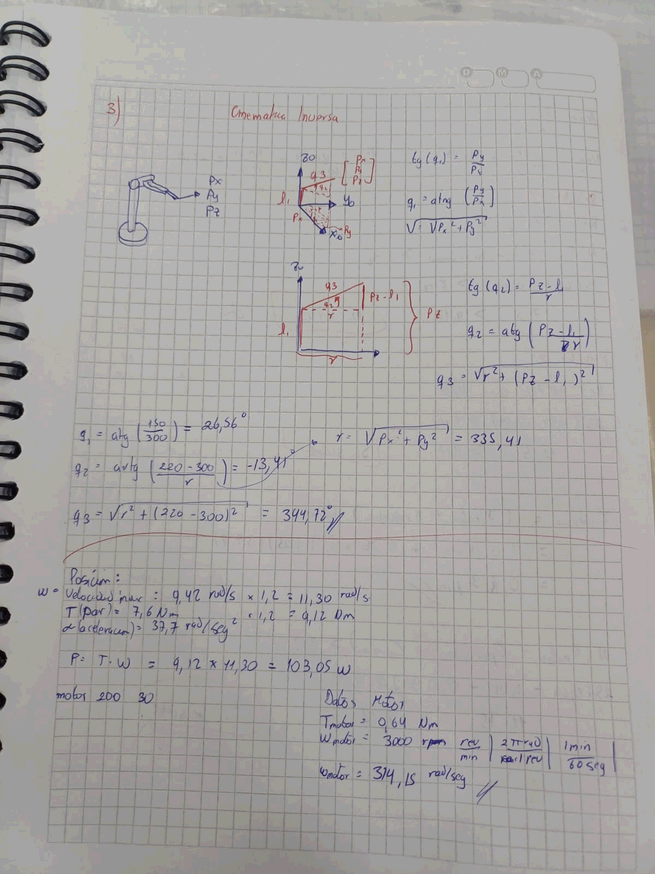 3) Cinematica Inversa
D M A
Px
Py
Pz
z0
q3
l1
y0
x0
Px
Py
Pz
tg(q1) = Py/Px
q1 = atng (Py/Px)
r = √Px² + Py²
q3
q2
r
l1
Pz - l1
Pz
r
tg(q2) = Pz - l1/r
q2 = atg (Pz - l1/r)
q3 = √r² + (Pz - l1)²
q1 = atg (150/300) = 26,56°
r = √Px² + Py² = 335,41
q2 = artg (220 - 300/r) = -13,41°
q3 = √r² + (220 - 300)² = 344,72°
Posicion:
W = Velocidad max : 9,42 rad/s × 1,2 = 11,30 rad/s
T(par) = 7,6 Nm × 1,2 = 9,12 Nm
α(aceleracion) = 37,7 rad/seg²
P = T · W = 9,12 × 11,30 = 103,05 W
motor 200 30
Datos Motor
Tmotor = 0,64 Nm
Wmotor = 3000 rpm rev/min | 2π rad/1 rev | 1 min/60 seg |
ωmotor = 314,15 rad/seg